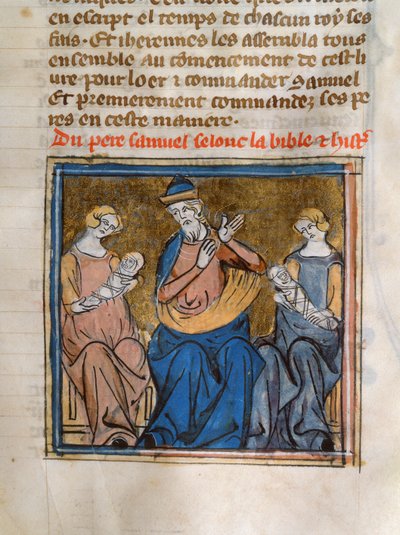 en escript le temps de chascun roy ses
fais. Et iherennes les assembla tous
ensemble au comencement de cest li
ure pour loer & commander Samuel
Et premierement commandez ses pe
res en ceste maniere.
Du pere samuel selonc la bible & hist